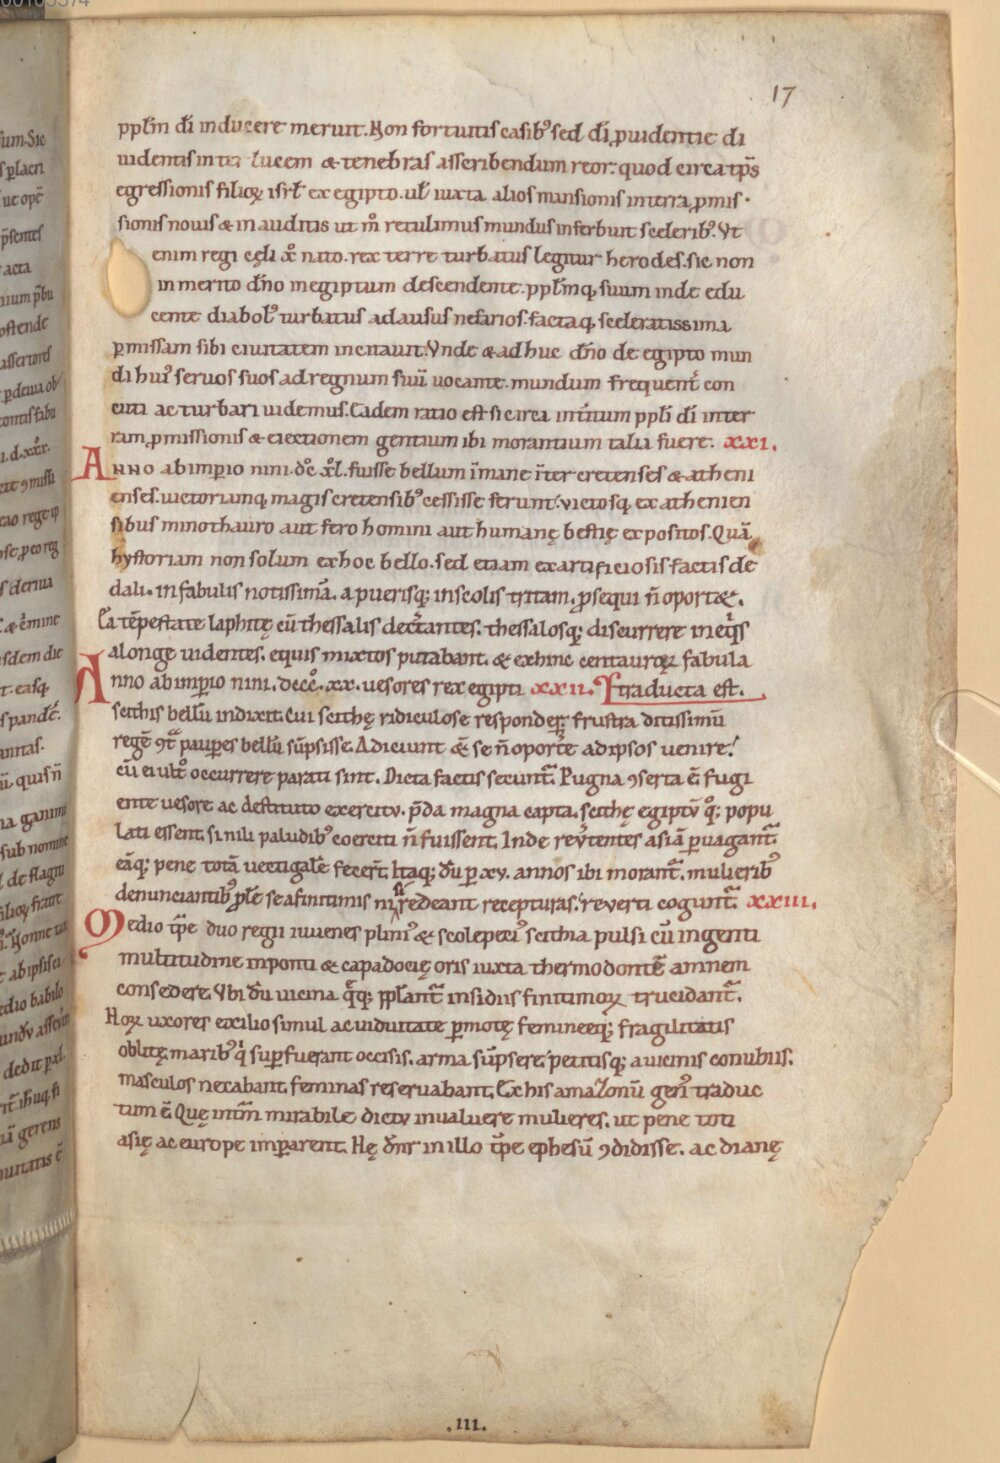 17
pplm di inducere meruit. Non fortuitis casib' sed di puidentie di
uidentis inter lucem & tenebras asscribendum reor. quod circa tps
egressionis filioꝝ isrl' ex egipto. ul' iuxta alios mansionis in terra pmis
sionis nouis & in auditis ut m° retulimus mundus inferbuit sceleribꝰ. Vt
enim regi cęli x° nato. rex terre turbatus legitur herodes. sic non
in merito dn̄o in egiptum descendente. pplm̄q; suum inde edu
cente diabolꝰ turbatus ad ausus nefarios. factaq; sceleratissima
ꝑmissam sibi ciuitatem incitauit. Vnde & adhuc dn̄o de egipto mun
di huiꝰ seruos suos ad regnum suū uocante. mundum frequent̄ con
cuti ac turbari uidemus. Eadem ratio est si circa int̄itum ppli di in ter
ram ꝓmissionis & eiectionem gentium ibi morantium talia fuere. XXI.
Anno ab imꝑio nini. dc° xl. fuisse bellum īmane īter cretenses & atheni
enses. uictoriamq; magis cretensibꝰ cessisse ferunt. victosq; ex athenien
sibus minothauro aut fero homini aut humanę bestię expositos. Quā
hystoriam non solum ex hoc bello. sed etiam ex artificiosis factis de
dali. in fabulis notissimā. a puerisq; in scolis tritam. ꝓsequi n̄ oport&.
Ea tēpestate laphitę cū thessalis dec̄tantes. thessalosq; discurrere in eq̄s
a longe uidentes. equis mixtos putabant. & exhinc centauroꝝ fabula
Anno ab imꝑio nini. dccc°. xx. uesores rex egipti XXII. traducta est.
scithis bellū indixit. Cui scithę ridiculose responder̄. frustra ditissimū
regē ꝯt̄ pauꝑes bellū sūpsisse. Adiciunt & se n̄ oport̄e ad ipsos uenire.
cū ei ult̄o occurrere parati sint. Dicta factis secunt̄. Pugna ꝯserta ē fugi
ente uesore ac destituto exercitv. p̄da magna capta. scithę egiptū q°q; popu
lati essent. si nili paludibꝰ coerciti n̄ fuissent. Inde reu̇tentes asiā ꝑuagant̄.
eāq; pene totā uectigalē fecer̄t. Itaq; dū ꝑ xv. annos ibi morant̄. mulieribꝰ
denunciantibꝰ ꝓlē se a finitimis nisi redeant recepturas. reuerti cogunt̄. XXIII.
Medio tp̄e duo regii iuuenes pliniꝰ & scolepeciꝰ scithia pulsi cū ingenti
multitudine in ponti & capadocię oris iuxta thermodontē amnem
consedere. Vbi dū uicina q̄q; pplant̄ insidiis finitimoꝝ trucidant̄.
Hoꝝ uxores exilio simul ac uiduitate ꝑmotę femineeq; fragilitatis
oblitę. maribꝰ q̇ suꝑfuerant occisis. arma sūpsere. petitisq; a uicinis conubiis.
masculos necabant. feminas reseruabant. Ex his amazonū genꝰ traduc
tum ē. Quę int̄m mirabile dictv inualuere mulieres. ut pene toti
asię ac europe imꝑarent. Hę dn̄r in illo tp̄e ephesū ꝯdidisse. ac dianę
.III.